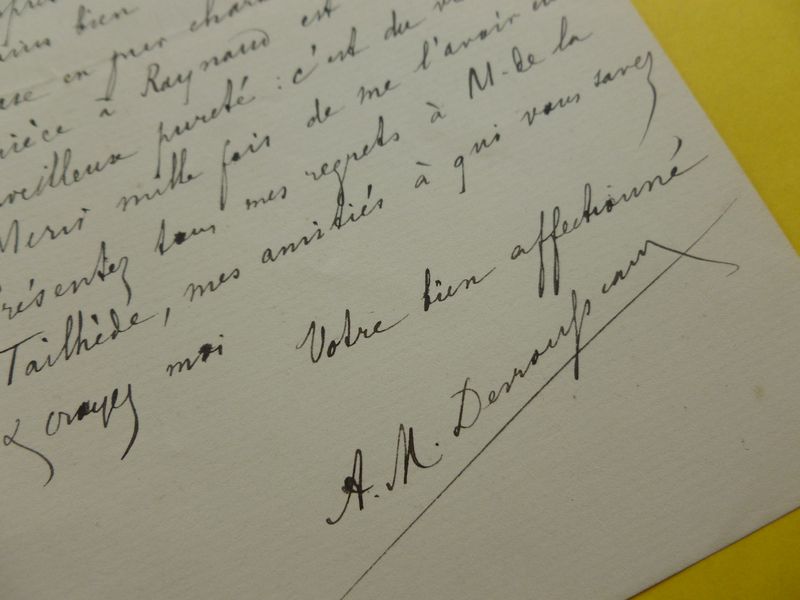 bien
en pur
pièce à Raynaud est
pureté : c'est du
Merci mille fois de me l'avoir
Présentez tous mes regrets à M. de la
Tailhède, mes amitiés à qui vous savez
& croyez moi Votre bien affectionné
A. M. Desrousseaux